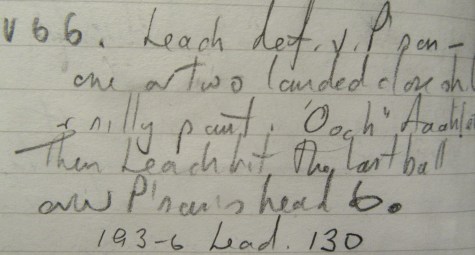 v 6 6. Leach def. v. P' pan-
one or two landed close sh
silly point. 'Ooch" Aaah
Then Leach hit the last ball
over P'pan's head 6.
193-6 Lead. 130